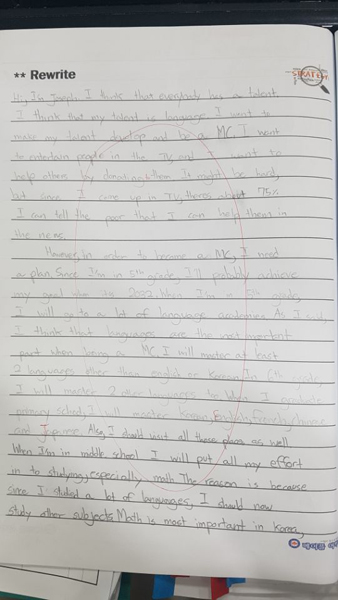 STRATEGY
** Rewrite
Hi, I'm Joseph. I think that everybody has a talent.
I think that my talent is language. I want to
make my talent develop and be a MC. I want
to entertain people in the TV and I want to
help others by donating them. It might be hard,
but since I came up in TV, there's about 75%
I can tell the poor that I can help them in
the news.
However, in order to become a MC, I need
a plan. Since I'm in 5th grade, I'll achieve
my goal 2032. When I'm in 5th grade,
I will go to a lot of language academies. As I said,
I think that languages are the most important
part when being a MC. I will master at least
2 languages other than english or Korean. In 6th grade,
I will master 2 other languages. When I graduate
primary school, I will master Korean, English, French, chinese
and Japanese. Also, I should visit all those places as well
When I'm in middle school I will put all my effort
in to studying, especially math The reason is because
since I studied a lot of languages, I should now
study other subjects Math is most important in Korea,